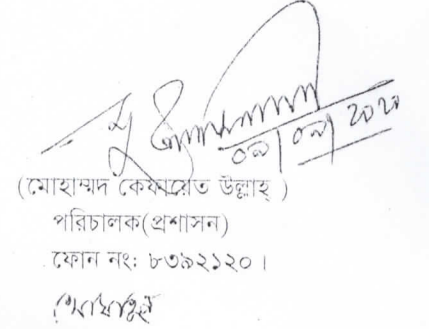 ০৯/০৯/২০২০
(মোহাম্মদ কেফায়েত উল্লাহ্ )
পরিচালক(প্রশাসন)
ফোন নং: ৮৩৯২১২০।